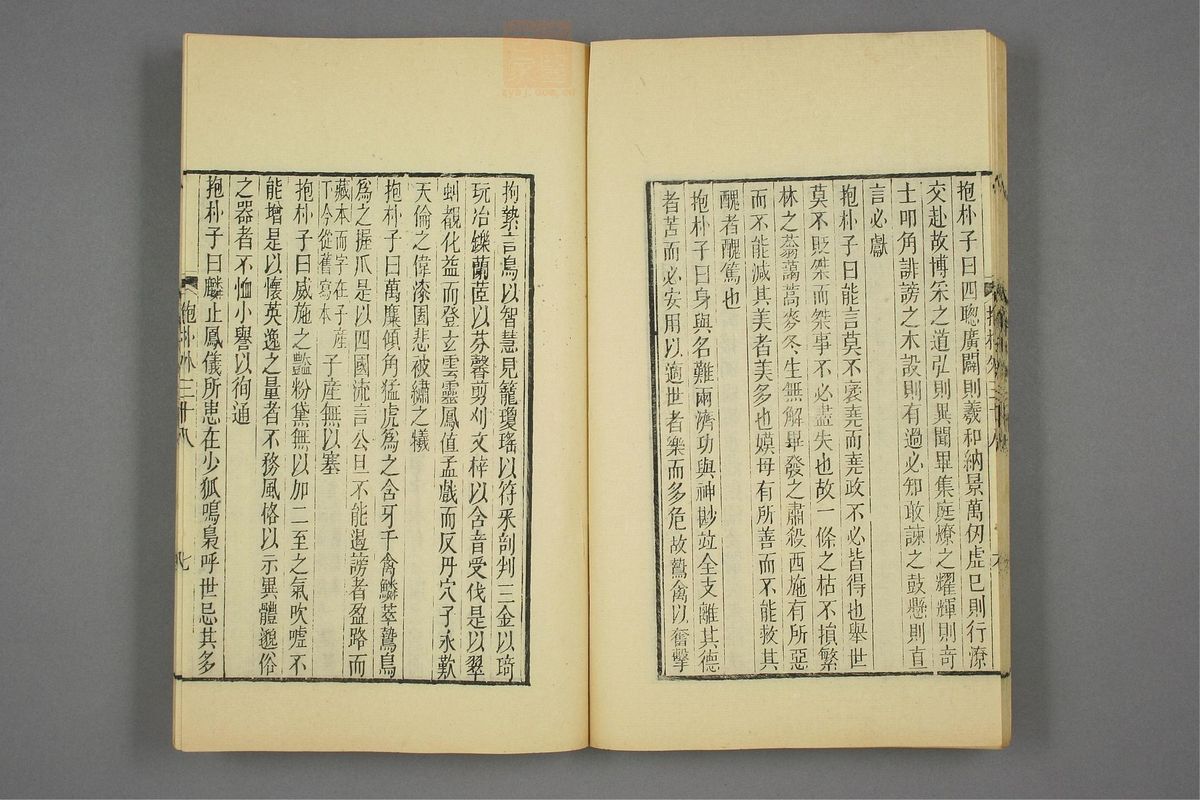 抱朴子曰四聰廣闢則羲和納景萬仞虛己則行潦
交赴故博采之道弘則異聞畢集庭燎之耀輝則奇
士叩角誹謗之木設則有過必知敢諫之鼓懸則直
言必獻
抱朴子曰能言莫不褒堯而堯政不必皆得也舉世
莫不貶桀而桀事不必盡失也故一條之枯不損繁
林之蓊藹蒿麥冬生無解畢發之肅殺西施有所惡
而不能減其美者美多也嫫母有所善而不能救其
醜者醜篤也
抱朴子曰身與名難兩濟功與神尠竝全支離其德
者苦而必安用以適世者樂而多危故鷙禽以奮擊
拘縶言鳥以智慧見籠瓊瑤以符采剖判三金以琦
玩冶鑠蘭茝以芬馨剪刈文梓以含音受伐是以翠
虯覩化益而登玄雲靈鳳值孟戲而反丹穴子永歎
天倫之偉漆園悲被繡之犧
抱朴子曰萬麋傾角猛虎為之含牙千禽鱗萃鷙鳥
為之握爪是以四國流言公旦不能遏謗者盈路而
藏本而字在子產
下今從舊寫本
子產無以塞
抱朴子曰威施之豔粉黛無以加二至之氣吹噓不
能增是以懷英逸之量者不務風格以示異體邈俗
之器者不恤小譽以徇通
抱朴子曰麟止鳳儀所患在少狐鳴梟呼世忌其多
抱朴外三十八
七